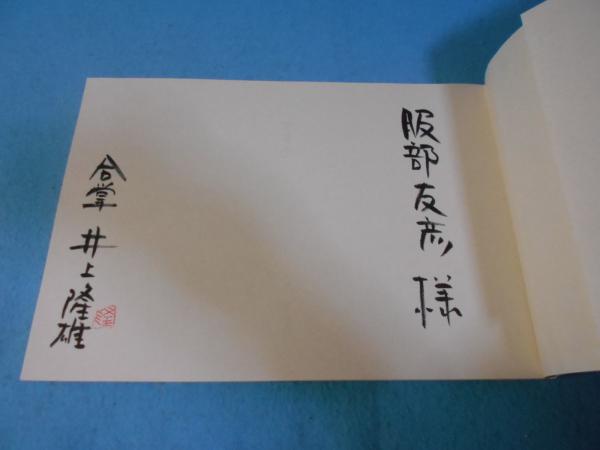 服部友彦様
合掌 井上隆雄